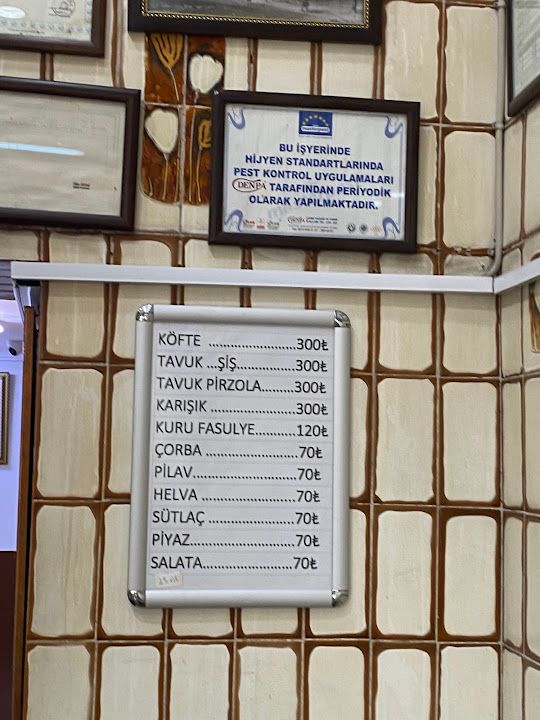 BU İŞYERİNDE
HİJYEN STANDARTLARINDA
PEST KONTROL UYGULAMALARI
DENPA TARAFINDAN PERİYODİK
OLARAK YAPILMAKTADIR.
KÖFTE ........................300₺
TAVUK ...ŞİŞ................300₺
TAVUK PİRZOLA.........300₺
KARIŞIK .......................300₺
KURU FASULYE...........120₺
ÇORBA .........................70₺
PİLAV............................70₺
HELVA ..........................70₺
SÜTLAÇ ........................70₺
PİYAZ............................70₺
SALATA.........................70₺